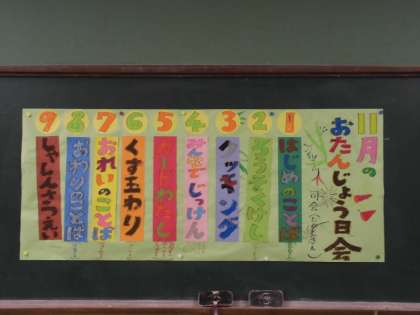 11月の
おたんじょう日会
1
はじめのことば
2
ろうそくけし
3
クッキング
4
みんなでじっけん
5
カードわたし
6
くす玉わり
7
おれいのことば
8
おわりのことば
9
しゃしんさつえい